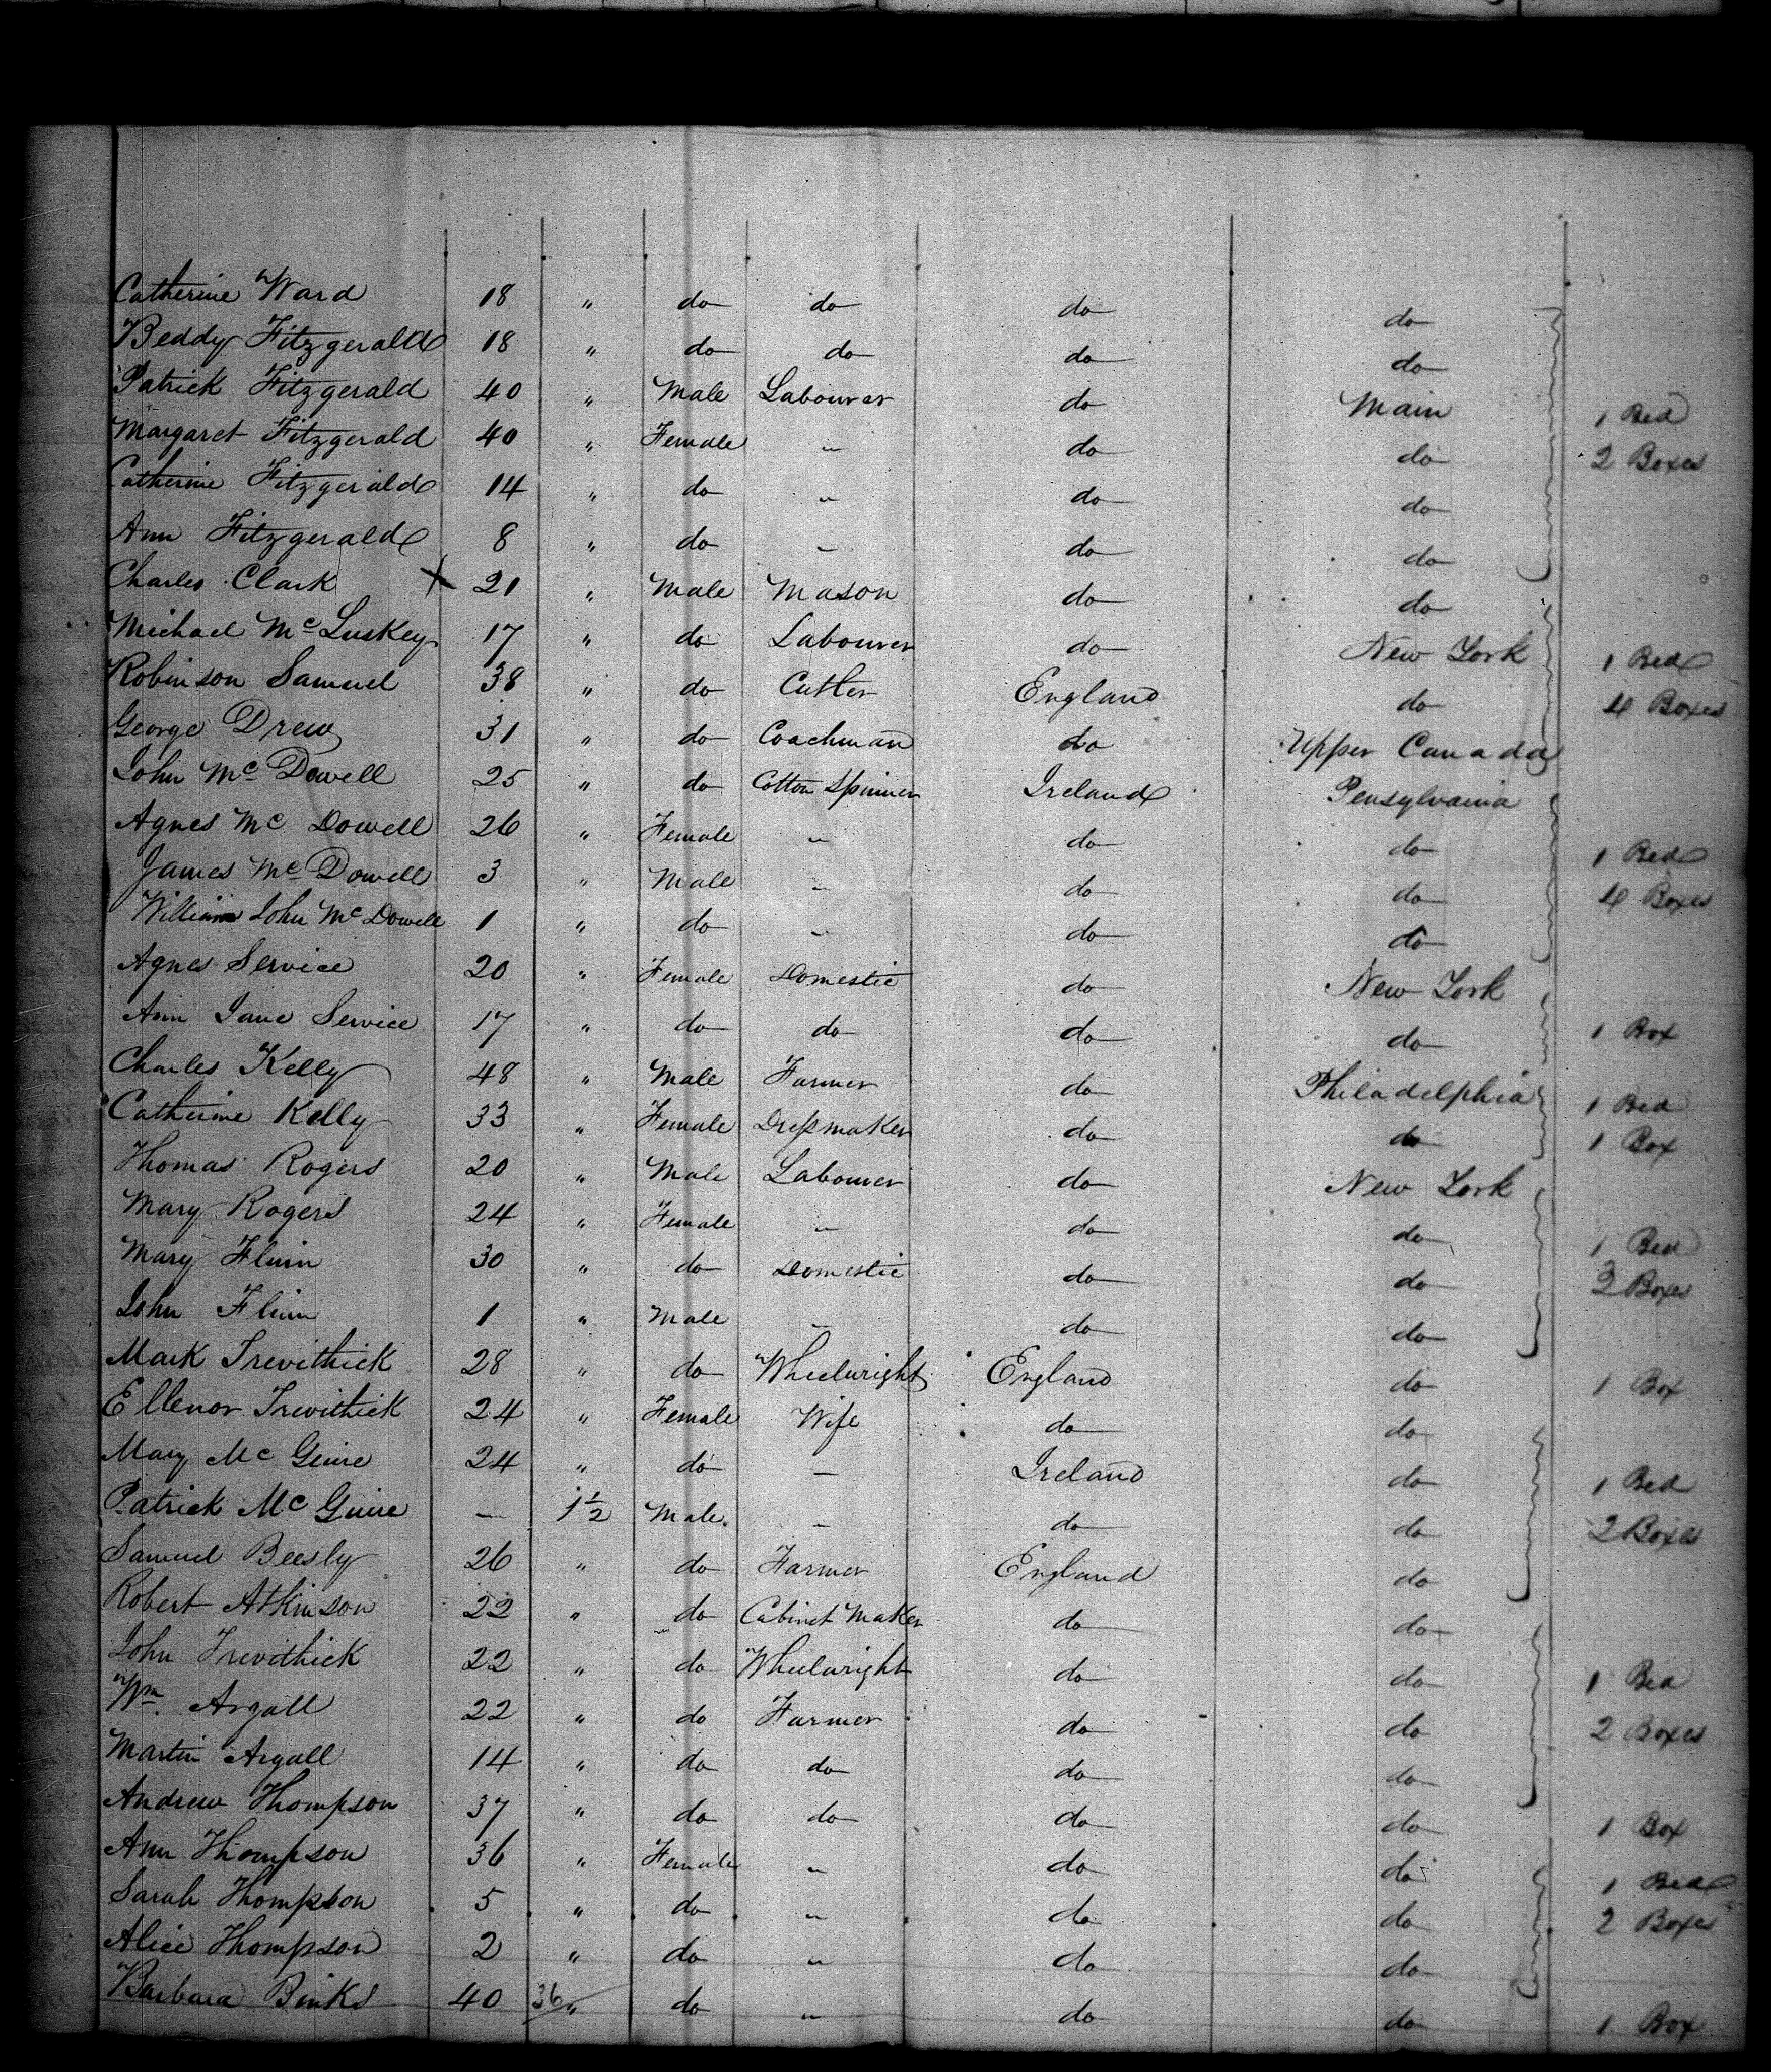 Catherine Ward 18 " do do do do
Beddy Fitzgerald 18 " do do do do
Patrick Fitzgerald 40 " Male Labourer do Main 1 Bed
Margaret Fitzgerald 40 " Female " do do 2 Boxes
Catherine Fitzgerald 14 " do " do do
Ann Fitzgerald 8 " do " do do
Charles Clark X 21 " Male Mason do do
Michael Mc Luskey 17 " do Labourer do New York 1 Bed
Robinson Samuel 38 " do Cutler England do 4 Boxes
George Drew 31 " do Coachman do Upper Canada
John Mc Dowell 25 " do Cotton Spinner Ireland Pensylvania
Agnes Mc Dowell 26 " Female " do do 1 Bed
James Mc Dowell 3 " Male " do do 4 Boxes
William John Mc Dowell 1 " do " do do
Agnes Service 20 " Female Domestic do New York
Ann Jane Service 17 " do do do do 1 Box
Charles Kelly 48 " Male Farmer do Philadelphia 1 Bed
Catherine Kelly 33 " Female Dressmaker do do 1 Box
Thomas Rogers 20 " Male Labourer do New York
Mary Rogers 24 " Female " do do 1 Bed
Mary Flinn 30 " do Domestic do do Boxes
John Flinn 1 " Male " do do
Mark Trevithick 28 " do Wheelwright England do 1 Box
Ellenor Trevithick 24 " Female Wife do do
Mary Mc Guire 24 " do — Ireland do 1 Bed
Patrick Mc Guire — 1½ Male " do do 2 Boxes
Samuel Beesly 26 " do Farmer England do
Robert Atkinson 22 " do Cabinet Maker do do
John Trevithick 22 " do Wheelwright do do 1 Bed
Wm. Argall 22 " do Farmer do do 2 Boxes
Martin Argall 14 " do do do do
Andrew Thompson 37 " do do do do 1 Box
Ann Thompson 36 " Female " do do 1 Bed
Sarah Thompson 5 " do " do do 2 Boxes
Alice Thompson 2 " do " do do
Barbara Binks 40 36 " do " do do 1 Box